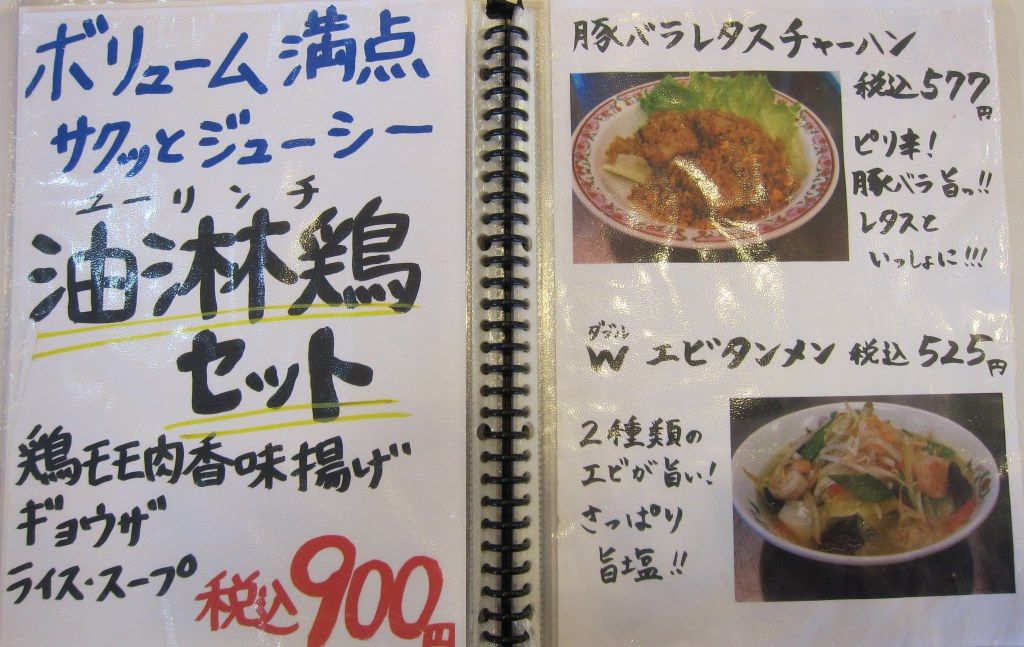 ボリューム満点
サクッとジューシー
ユーリンチ
油淋鶏
セット
鶏モモ肉香味揚げ
ギョウザ
ライス・スープ
税込900円
豚バラレタスチャーハン
税込577円
ピリ辛!
豚バラ旨っ!!
レタスと
いっしょに!!!
ダブル
W エビタンメン 税込525円
2種類の
エビが旨い!
さっぱり
旨塩!!